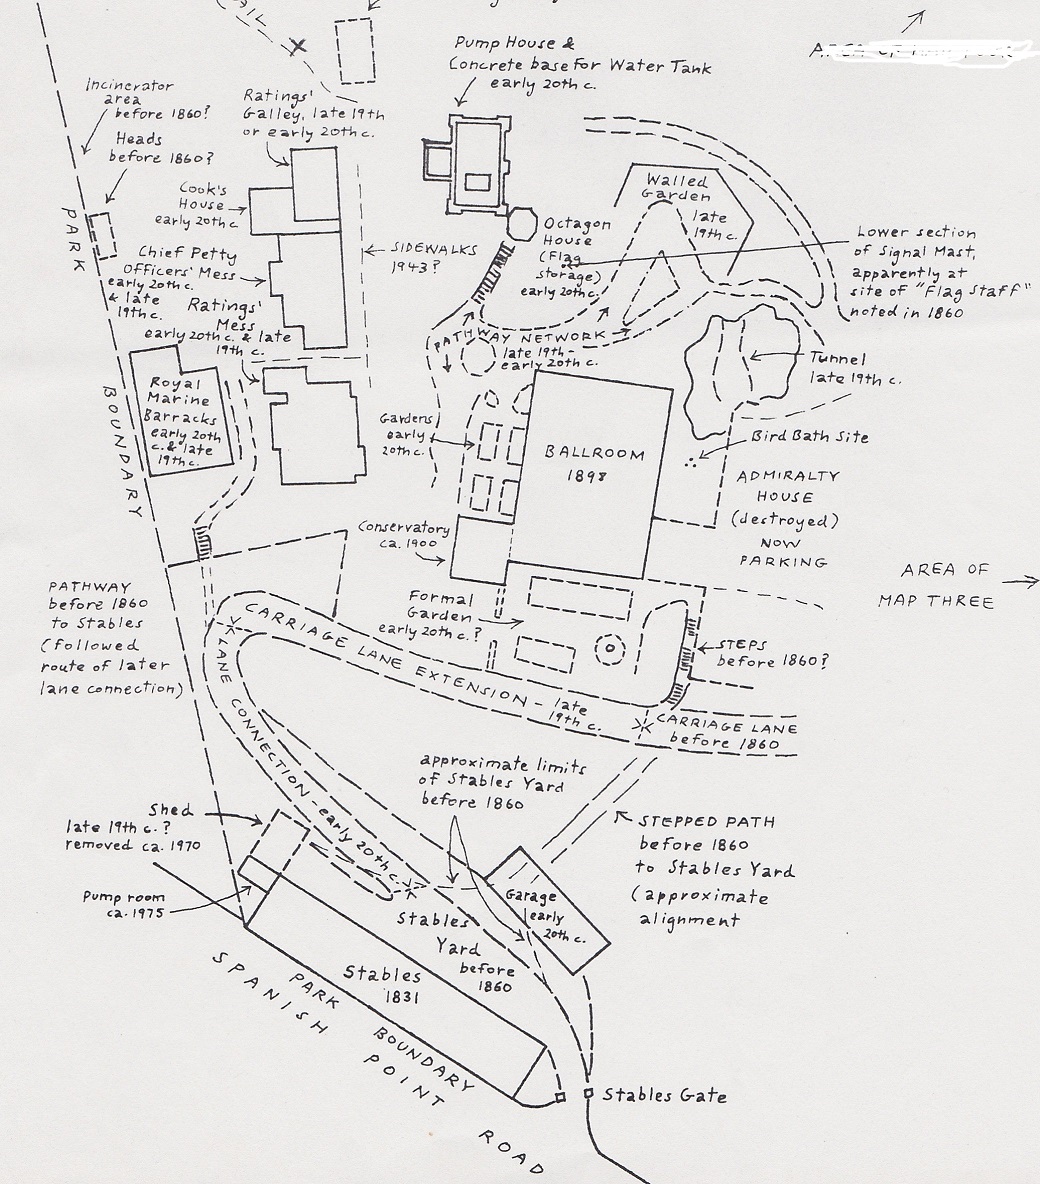 AIL
Pump House &
Concrete base for Water Tank
early 20th c.
Incinerator
area
before 1860?
Heads
before 1860?
Ratings'
Galley, late 19th
or early 20th c.
Cook's
House
early 20th c
Chief Petty
Officers' Mess
early 20th c.
& late
19th c.
Ratings'
Mess
early 20th c. & late
19th c.
SIDEWALKS
1943?
Walled
Garden
late
19th c.
Octagon
House
(Flag
storage)
early 20th c.
Lower section
of Signal Mast,
apparently at
site of "Flag Staff"
noted in 1860
PATHWAY NETWORK
late 19th -
early 20th c.
Tunnel
late 19th c.
PARK
BOUNDARY
Royal
Marine
Barracks
early 20th
c. & late
19th c.
Gardens
early
20th c.
BALLROOM
1898
Bird Bath Site
ADMIRALTY
HOUSE
(destroyed)
NOW
PARKING
Conservatory
ca. 1900
AREA OF
MAP THREE
PATHWAY
before 1860
to Stables
(followed
route of later
lane connection)
Formal
Garden
early 20th c.?
CARRIAGE LANE EXTENSION - late
19th c.
STEPS
before 1860?
CARRIAGE LANE
before 1860
LANE CONNECTION - early 20th c.
approximate limits
of Stables Yard
before 1860
Shed
late 19th c.?
removed ca. 1970
STEPPED PATH
before 1860
to Stables Yard
(approximate
alignment
Pump room
ca. 1975
Garage
early
20th c.
Stables
Yard
before
1860
Stables
1831
PARK BOUNDARY
SPANISH POINT ROAD
Stables Gate